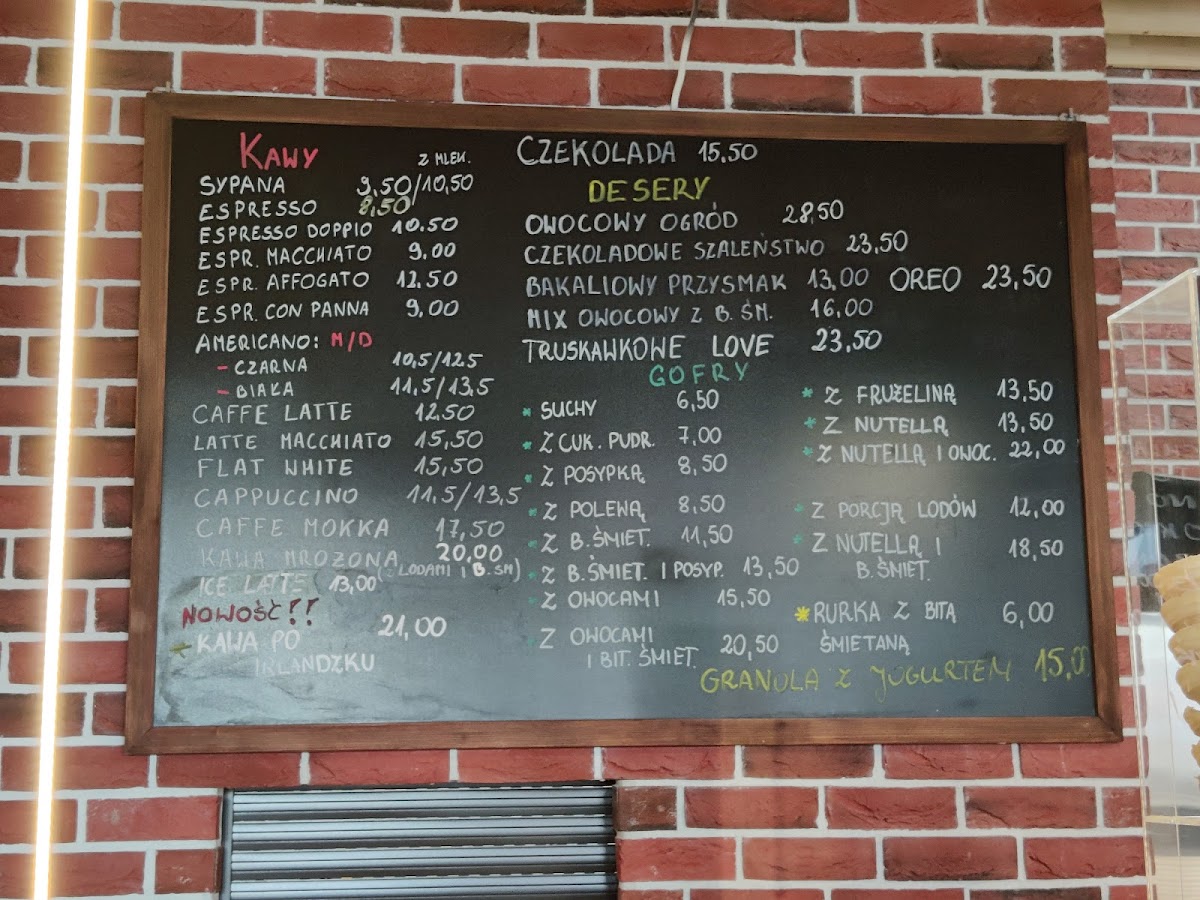 KAWY
Z MLEK.
SYPANA 9,50/10,50
ESPRESSO 8,50
ESPRESSO DOPPIO 10.50
ESPR. MACCHIATO 9,00
ESPR. AFFOGATO 12,50
ESPR. CON PANNA 9,00
AMERICANO: M/D
- CZARNA 10,5/12,5
- BIAŁA 11,5/13,5
CAFFE LATTE 12,50
LATTE MACCHIATO 15,50
FLAT WHITE 15,50
CAPPUCCINO 11,5/13,5
CAFFE MOKKA 17,50
KAWA MROŻONA 20,00
(Z LODAMI I B.ŚM)
ICE LATTE 13,00
NOWOŚĆ!!
KAWA PO 21,00
IRLANDZKU
CZEKOLADA 15,50
DESERY
OWOCOWY OGRÓD 28,50
CZEKOLADOWE SZALEŃSTWO 23,50
BAKALIOWY PRZYSMAK 13,00 OREO 23,50
MIX OWOCOWY Z B. ŚM. 16,00
TRUSKAWKOWE LOVE 23,50
GOFRY
* SUCHY 6,50
* Z CUK. PUDR. 7,00
* Z POSYPKĄ 8,50
* Z POLEWĄ 8,50
* Z B.ŚMIET. 11,50
* Z B.ŚMIET. I POSYP. 13,50
* Z OWOCAMI 15,50
* Z OWOCAMI
I BIT. ŚMIET. 20,50
* Z FRUŻELINĄ 13,50
* Z NUTELLĄ 13,50
* Z NUTELLĄ I OWOC. 22,00
* Z PORCJĄ LODÓW 12,00
* Z NUTELLĄ I 18,50
B. ŚMIET.
* RURKA Z BITĄ 6,00
ŚMIETANĄ
GRANOLA Z JOGURTEM 15,00